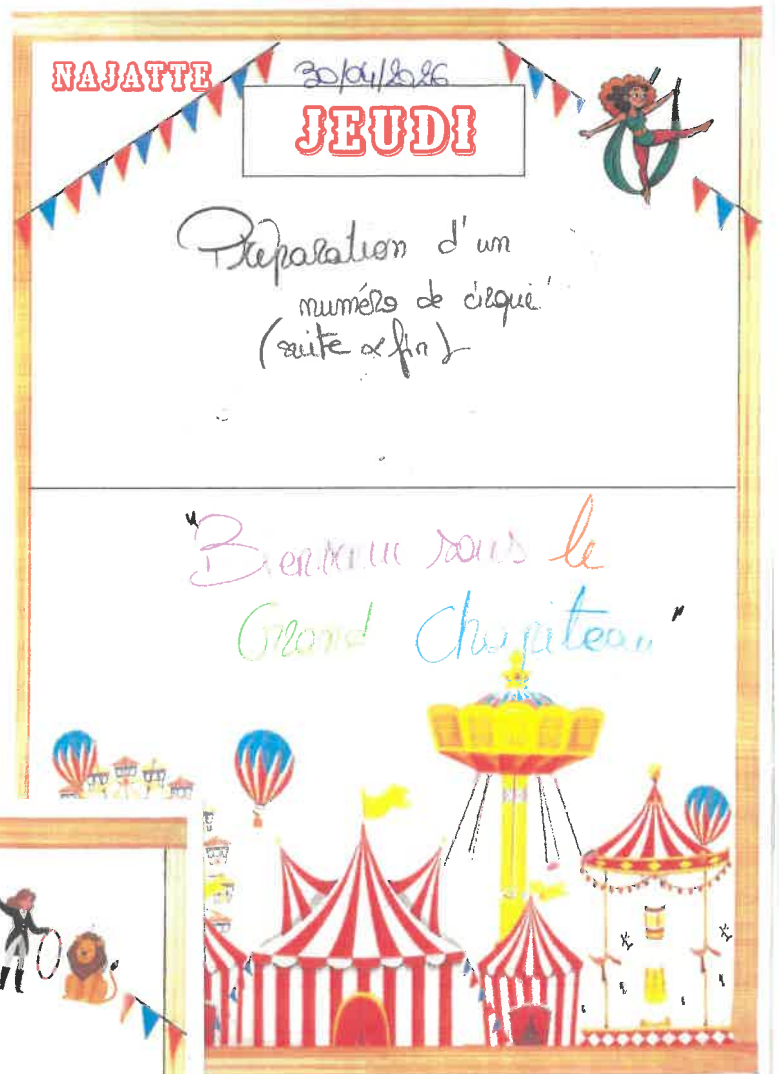 NAJATTE
30/04/2026
JEUDI
Préparation d'un
numéro de cirque
(suite & fin)
"Bienvenue sous le
Grand Chapiteau"